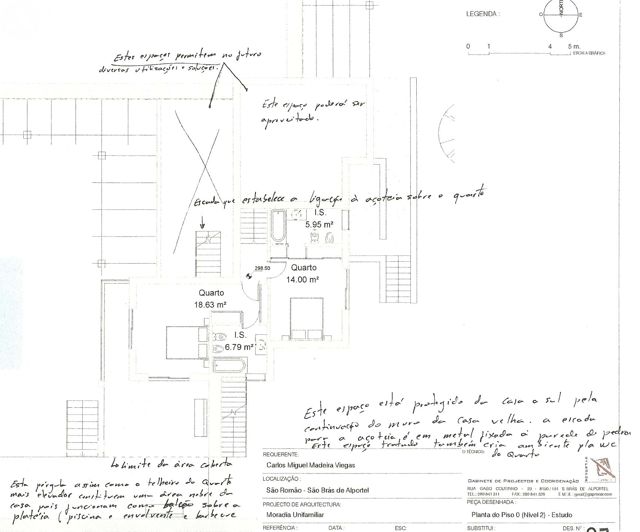 LEGENDA :
NORTE
S
0 1 4 5 m.
ESCALA GRÁFICA
Estes espaços permitem no futuro
diversas utilizações e soluções.
Este espaço poderá ser
aproveitado.
Escada que estabelece a ligação à açoteia sobre o quarto
I.S.
5.95 m²
298.50
Quarto
14.00 m²
Quarto
18.63 m²
I.S.
6.79 m²
Este espaço está protegido da casa a sul pela
continuação do muro da casa velha. a escada
para a açoteia é em metal fixada à parede de pedra
Este espaço tratado também cria ambiente pla WC
do Quarto
limite da área coberta
Esta pérgula assim como o telheiro do Quarto
mais elevados constituem uma área nobre da
casa pois funcionam como balcão sobre a
plateia (piscina e envolvente e barbecue
REQUERENTE:
Carlos Miguel Madeira Viegas
LOCALIZAÇÃO :
São Romão - São Brás de Alportel
PROJECTO DE ARQUITECTURA:
Moradia Unifamiliar
REFERÊNCIA : DATA: ESC:
O TÉCNICO:
GABINETE DE PROJECTOS E COORDENAÇÃO
PEÇA DESENHADA :
Planta do Piso 0 (Nível 2) - Estudo
SUBSTITUI: DES. Nº